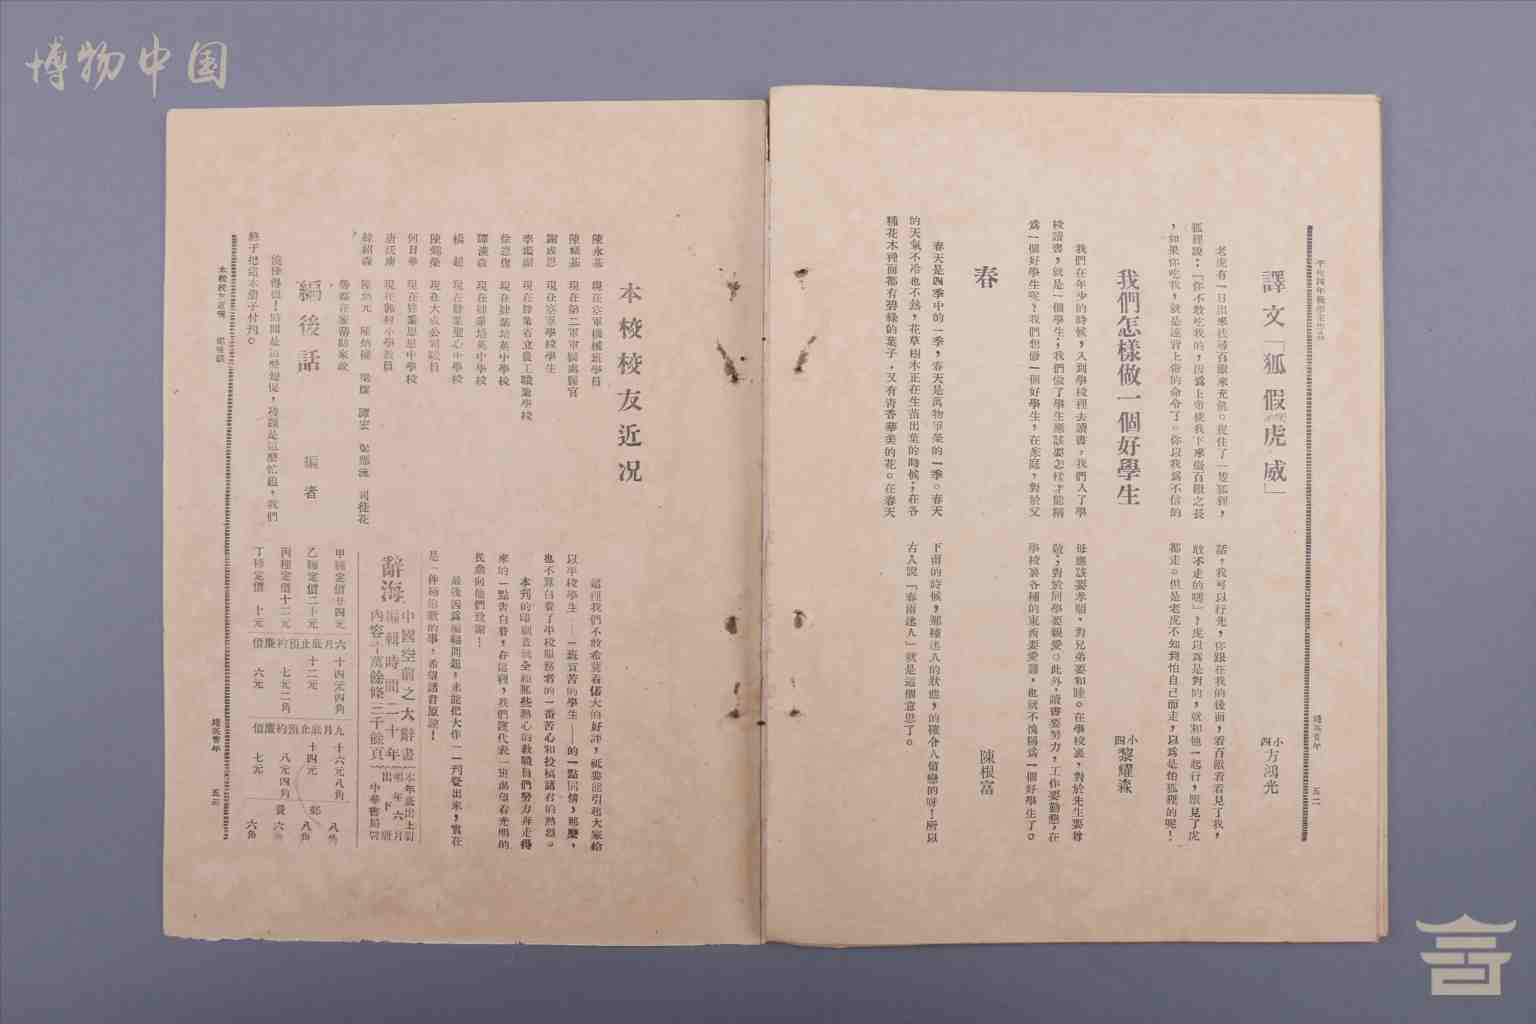 博物中国
譯文「狐假虎威」
小四 方鴻光
老虎有一日出來找尋百獸來充飢。捉住了一隻狐狸，
狐狸說：『你不敢吃我的，因為上帝使我下來做百獸之長
，如果你吃我，就是違背上帝的命令了。你以我為不信的
話，我可以行先，你跟在我的後面，看百獸看着見了我，
敢不走的嗎』？虎以為是對的，就和他一起行，獸見了虎
都走。但是老虎不知到怕自己而走，以為是怕狐狸的呢！
我們怎樣做一個好學生
小四 黎耀森
我們在年少的時候，入到學校裡去讀書，我們入了學
校讀書，就是一個學生；我們做了學生應該要怎樣才能稱
為一個好學生呢？我們想做一個好學生，在家庭，對於父
母應該要孝順，對兄弟要和睦。在學校裏，對於先生要尊
敬；對於同學要親愛。此外，讀書要努力，工作要勤懇，在
學校裏各種的東西要愛護，也就不愧稱為一個好學生了。
春
陳根富
春天是四季中的一季，春天是萬物爭榮的一季。春天
的天氣不冷也不熱，花草樹木正在生苗出葉的時候；在各
種花木裡面都有碧綠的葉子，又有清香華美的花。在春天
下雨的時候，那種迷人的狀態，的確令人留戀的呀！所以
古人說「春雨迷人」就是這個意思了。
五二
本校校友近況
陳永基 現在空軍機械班學員
陳 基 現在第二軍軍醫處醫官
謝成恩 現在空軍學校學生
李 現在肄業省立農工職業學校
徐 現在肄業培英中學校
譚漢森 現在肄業培英中學校
楊超 現在肄業聖心中學校
陳 榮 現在大成公司職員
何日華 現在肄業思思中學校
唐 現在 小學教員
徐紹森 陳炳元 陳炳權 梁燦 譚宏 司徒花
等都在家幫助家政
編後話
編者
時間是這麼短促，功課是這麼忙碌，我們
終于把這本冊子付刊。
這裡我們不敢希冀着偌大的好評，祗要能引起大家給
以平校學生——一班貧苦的學生——的一點同情，那麼，
也不算白費了平校服務者的一番苦心和投稿諸君的熱烈。
本刊的印刷費就全賴那些熱心的教職員們努力奔走得
來的一點書白費，在這裡，我們謹代表一班渴望着光明的
民眾向他們致謝！
最後因為編輯問題，未能把大作一一刊登出來，實在
是一件極抱歉的事，希望諸君原諒！
辭海
中國空前之大辭書
編輯時間二十年
內容十萬餘條三千餘頁
本年底出上冊
明年六月出下冊
中華書局
甲種定價廿四元
乙種定價二十元
丙種定價十二元
丁種定價 十元
六月底止預約廉價
十四元四角
十二元
七元二角
六元
九月底止預約廉價
十六元八角
十四元
八元四角
七元
郵費
八角
八角
六角
六角
本校校友近況 編後話
五三